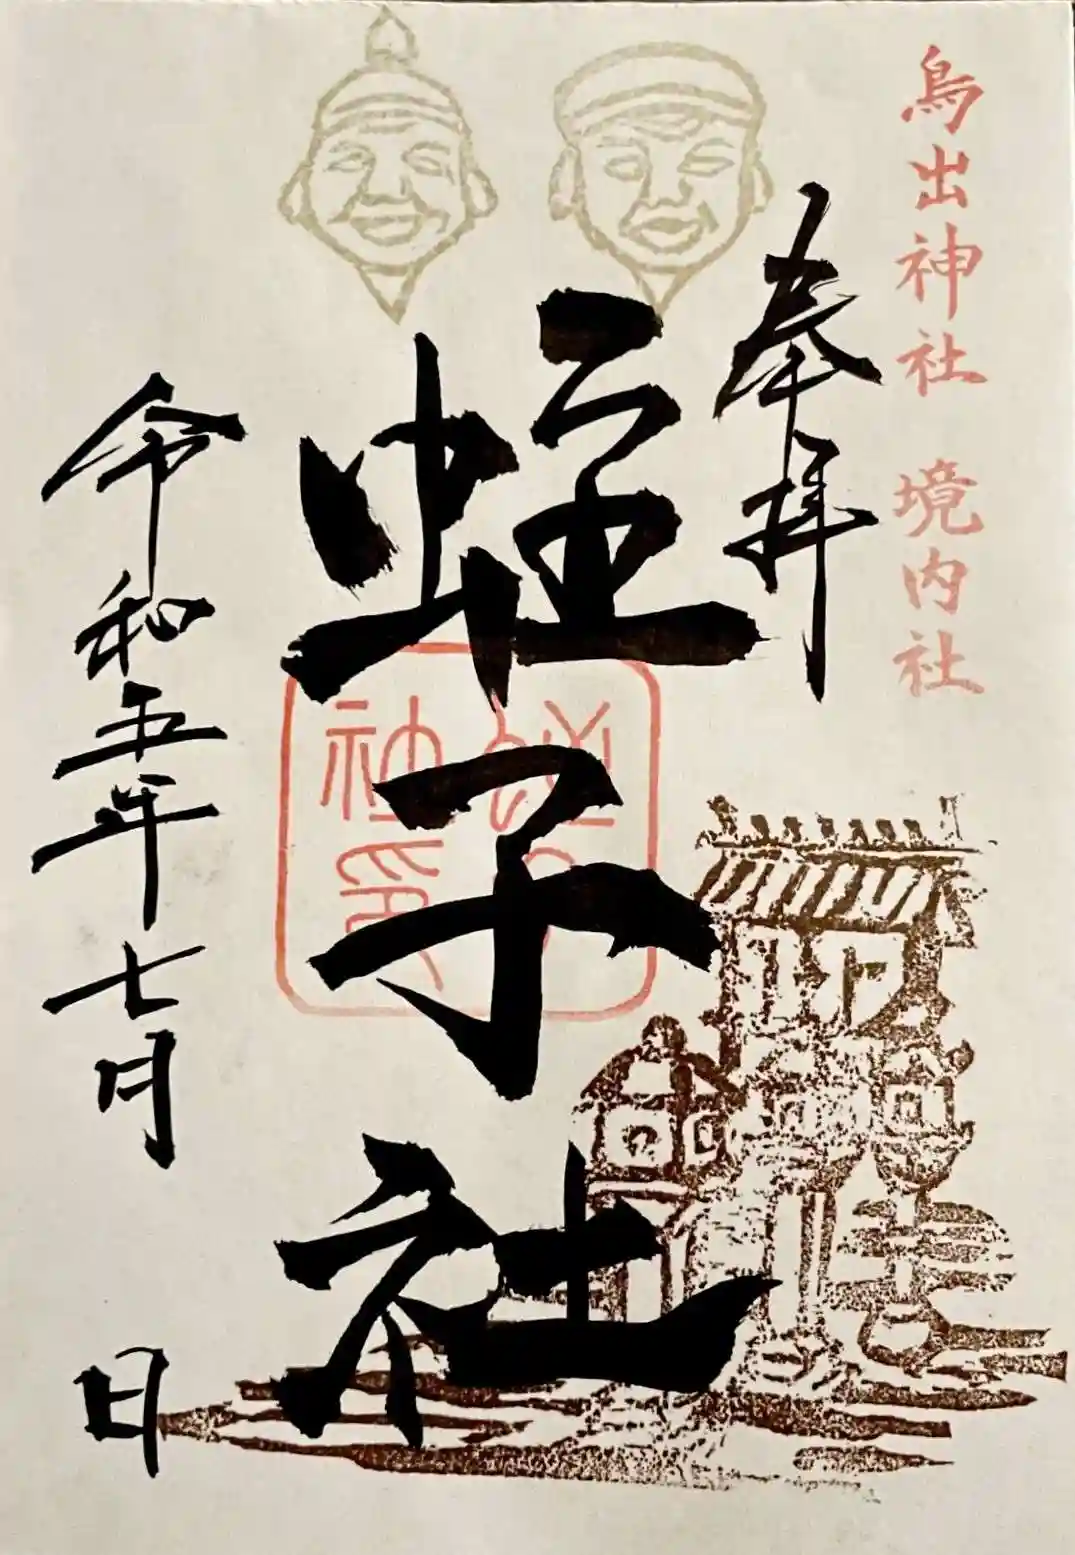 鳥出神社 境内社
奉拝
蛭子社
蛭子社印
令和五年七月 日